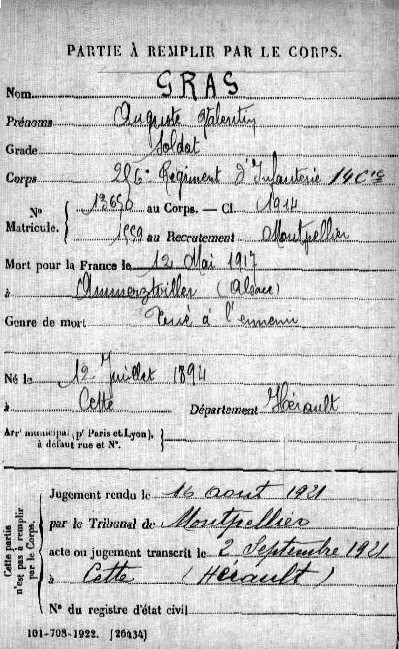 PARTIE À REMPLIR PAR LE CORPS.
Nom GRAS
Prénoms Auguste Valentin
Grade Soldat
Corps 286e Régiment d'Infanterie 14 Cie
N° Matricule. { 13650 au Corps. — Cl. 1914
1559 au Recrutement Montpellier
Mort pour la France le 12 Mai 1917
à Ammerztwiller (Alsace)
Genre de mort Tué à l'ennemi
Né le 12 Juillet 1894
à Cette Département Hérault
Arrt municipal (pr Paris et Lyon), à défaut rue et N°.
Cette partie n'est pas à remplir par le Corps.
Jugement rendu le 16 août 1921
par le Tribunal de Montpellier
acte ou jugement transcrit le 2 Septembre 1921
à Cette (Hérault)
N° du registre d'état civil
101-708-1922. [26434]